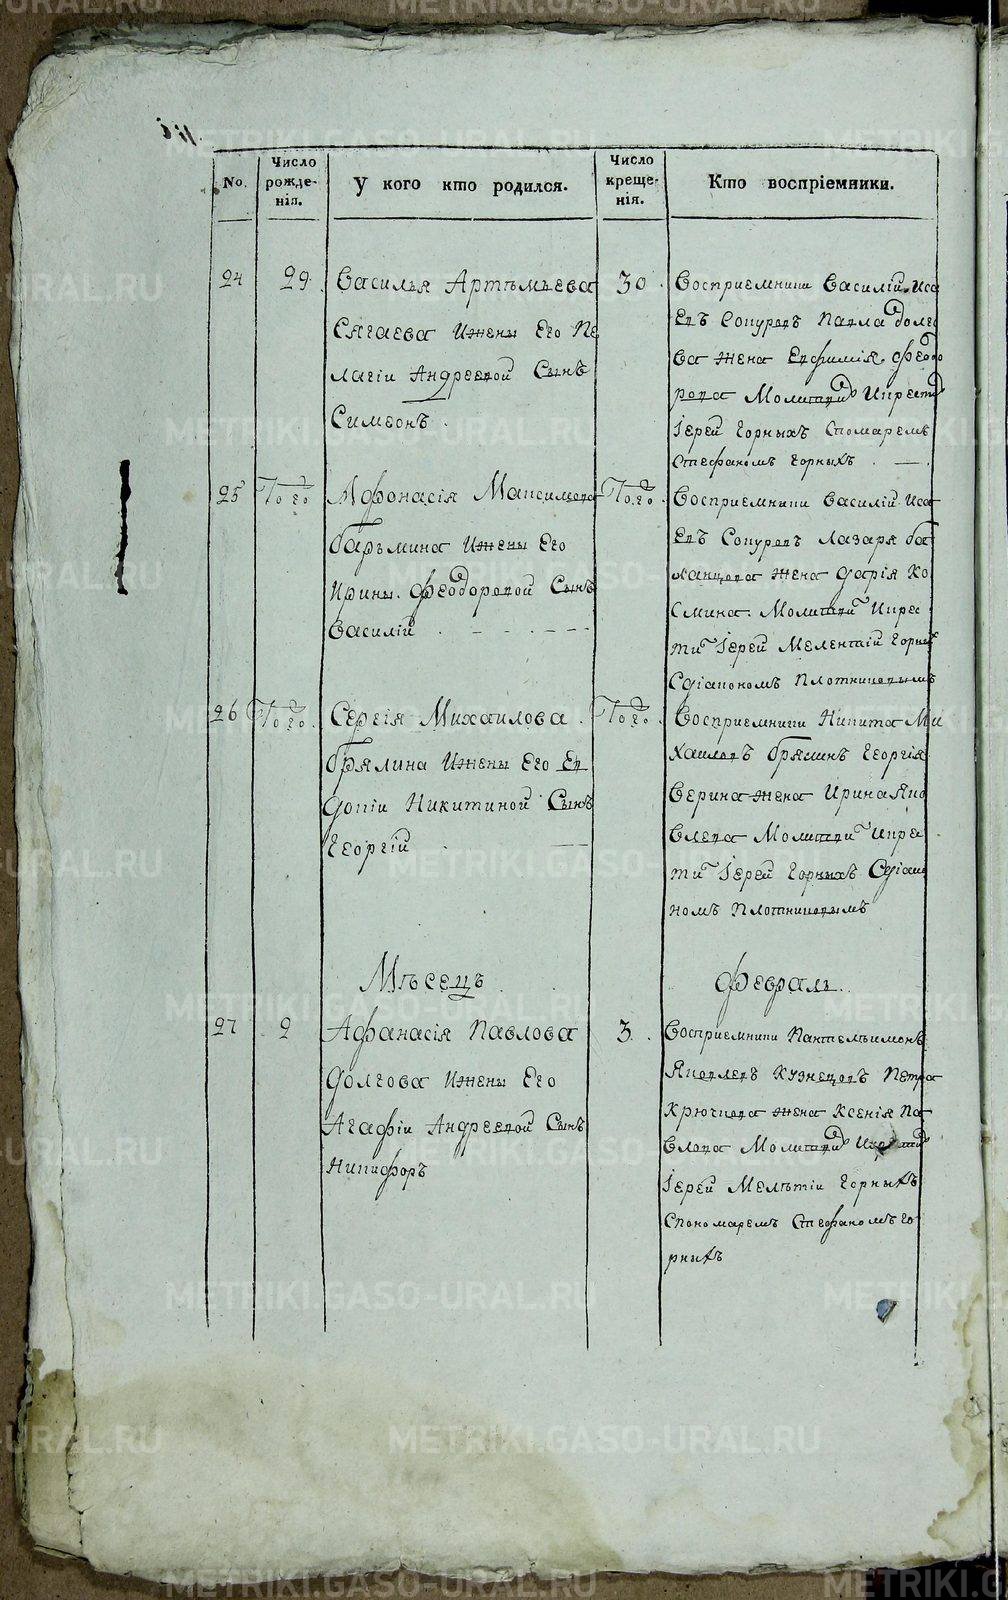 No.
Число рожде-нія.
У кого кто родился.
Число креще-нія.
Кто воспріемники.
24
29.
Василья Артѣмьева
Сягаева Ижены Его Пе
лагіи Андреевой Сынъ
Симеонъ.
30.
Восприемники Василій Иса
Евъ Сокуровъ Павла долго
ва жена Евфимія Феодо
рова Молитвой Икрестил
Іерей Горныхъ Спомаремъ
Стефаномъ Горныхъ.
25
Того
Афонасія Максимова
Ижены Его
Ирины Феодоровой Сынъ
Василій
Того
Восприемники Василій Иса
Евъ Сокуровъ Лазаря ба
ланцова жена дарія Ко
Смина. Икре
тил Іерей Мелентій Горных
Сдіакономъ Плотниковымъ
26
Того.
Сергія Михаилова
брялина Ижены Его Ев
докіи Никитиной Сынъ
Георгій
Того.
Восприемники Никита Ми
хаиловъ Георгія
Верина жена Ирина Яко
Влева Икре
тил Іерей Горныхъ Сдіако
номъ Плотниковымъ
Мѣсецъ
Февраль.
27
2
Афанасія Павлова
Долгова Ижены Его
Агафіи Андреевой Сынъ
Никифоръ
3.
Восприемники Пантелѣимонъ
Яковлевъ Кузнецовъ Петра
Крючкова жена Ксенія Па
Влова
Іерей Мелѣтіи Горныхъ
Спономаремъ Стефаномъ го
рныхъ
METRIKI.GASO-URAL.RU